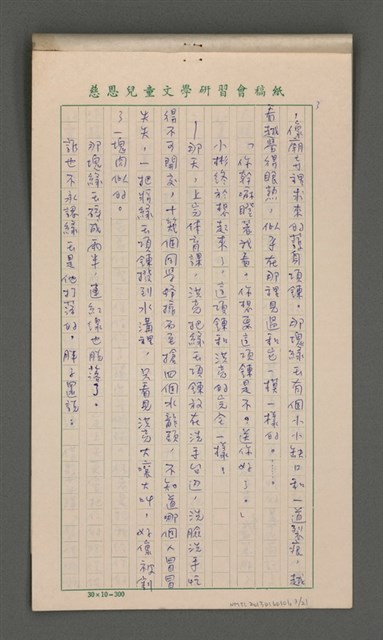 慈恩兒童文學研習會稿紙
，像廟寺裡求來的護身項鍊。那塊綠玉有個小小缺口和一道裂痕，越
看越覺得眼熟，似乎在那裡見過和它一模一樣的。……
「你幹嘛瞪著我看。你想要這項鍊是不？送你好了。」
小彬終於想起來了，這項鍊和洪亮的完全一樣！
－那天，上完體育課，洪亮把綠玉項鍊放在洗手台邊，洗臉洗手忙
得不可開交，十幾個同學爭搶四個水龍頭，不知道哪個人冒冒
失失，一把將綠玉項鍊撥到水溝裡，只看見洪亮大嚷大叫，好像被割
了一塊肉似的。
那塊綠玉碎成兩半，連紅線也脫落了。
誰也不承認綠玉是他打落的。胖子還說：
30×10=300